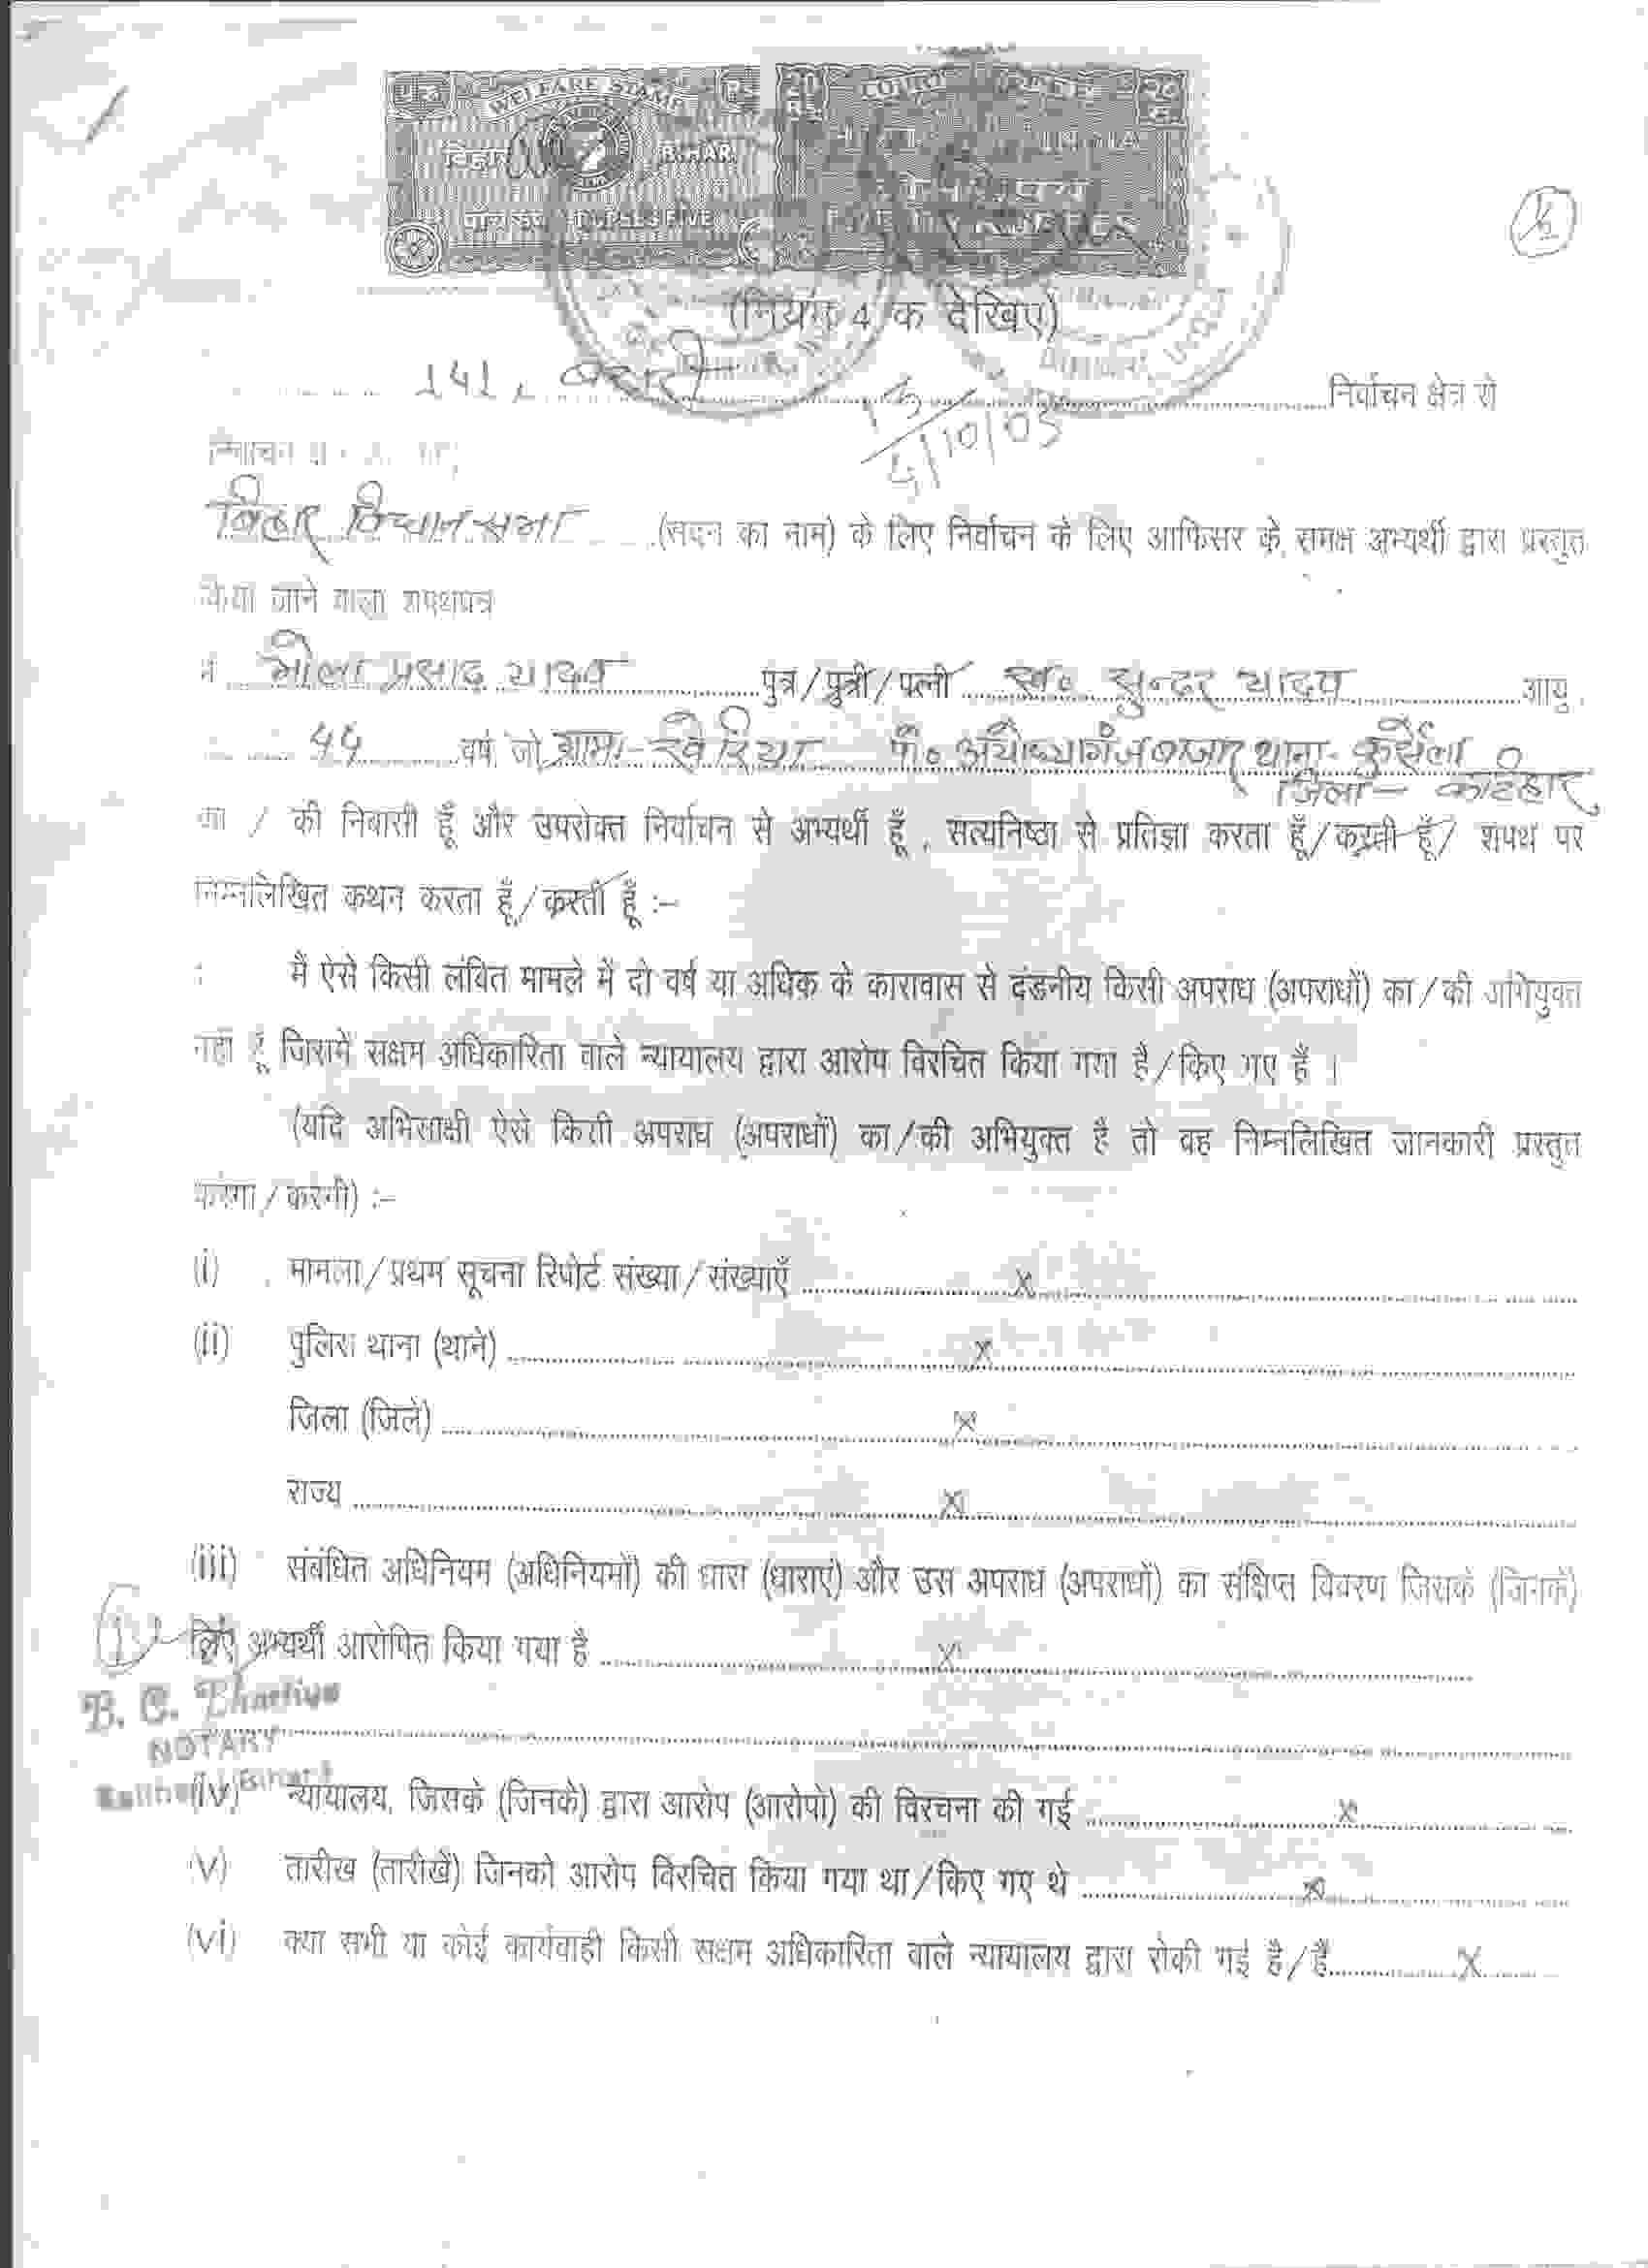 WELFARE STAMP Rs.
बिहार BIHAR
पाँच रुपये RUPEES FIVE
20 Rs. COURT
INDIA
RUPEES
(नियम 4 क देखिए)
141, बरारी निर्वाचन क्षेत्र से
13/4/10/05
बिहार विधान सभा (सदन का नाम) के लिए निर्वाचन के लिए आफिसर के समक्ष अभ्यर्थी द्वारा प्रस्तुत
किया जाने वाला शपथपत्र
मैं भोला प्रसाद यादव पुत्र/पुत्री/पत्नी स्व० सुन्दर यादव आयु
44 वर्ष जो ग्राम - खेरिया पो० अयोध्यागंज बजार थाना - कुर्सेला
जिला - कटिहार
का / की निवासी हूँ और उपरोक्त निर्वाचन से अभ्यर्थी हूँ, सत्यनिष्ठा से प्रतिज्ञा करता हूँ/करती हूँ/ शपथ पर
निम्नलिखित कथन करता हूँ/करती हूँ :–
मैं ऐसे किसी लंबित मामले में दो वर्ष या अधिक के कारावास से दंडनीय किसी अपराध (अपराधों) का/की अभियुक्त
नहीं हूँ जिसमें सक्षम अधिकारिता वाले न्यायालय द्वारा आरोप विरचित किया गया है/किए गए हैं ।
(यदि अभिसाक्षी ऐसे किसी अपराध (अपराधों) का/की अभियुक्त है तो वह निम्नलिखित जानकारी प्रस्तुत
करेगा/करेगी) :–
(i) मामला/प्रथम सूचना रिपोर्ट संख्या/संख्याएँ x
(ii) पुलिस थाना (थाने) x
जिला (जिले) x
राज्य x
(iii) संबंधित अधिनियम (अधिनियमों) की धारा (धाराएं) और उस अपराध (अपराधों) का संक्षिप्त विवरण जिसके (जिनके)
लिए अभ्यर्थी आरोपित किया गया है x
B. C.
NOTARY
(iv) न्यायालय, जिसके (जिनके) द्वारा आरोप (आरोपों) की विरचना की गई x
(v) तारीख (तारीखें) जिनको आरोप विरचित किया गया था/किए गए थे x
(vi) क्या सभी या कोई कार्यवाही किसी सक्षम अधिकारिता वाले न्यायालय द्वारा रोकी गई है/हैं x